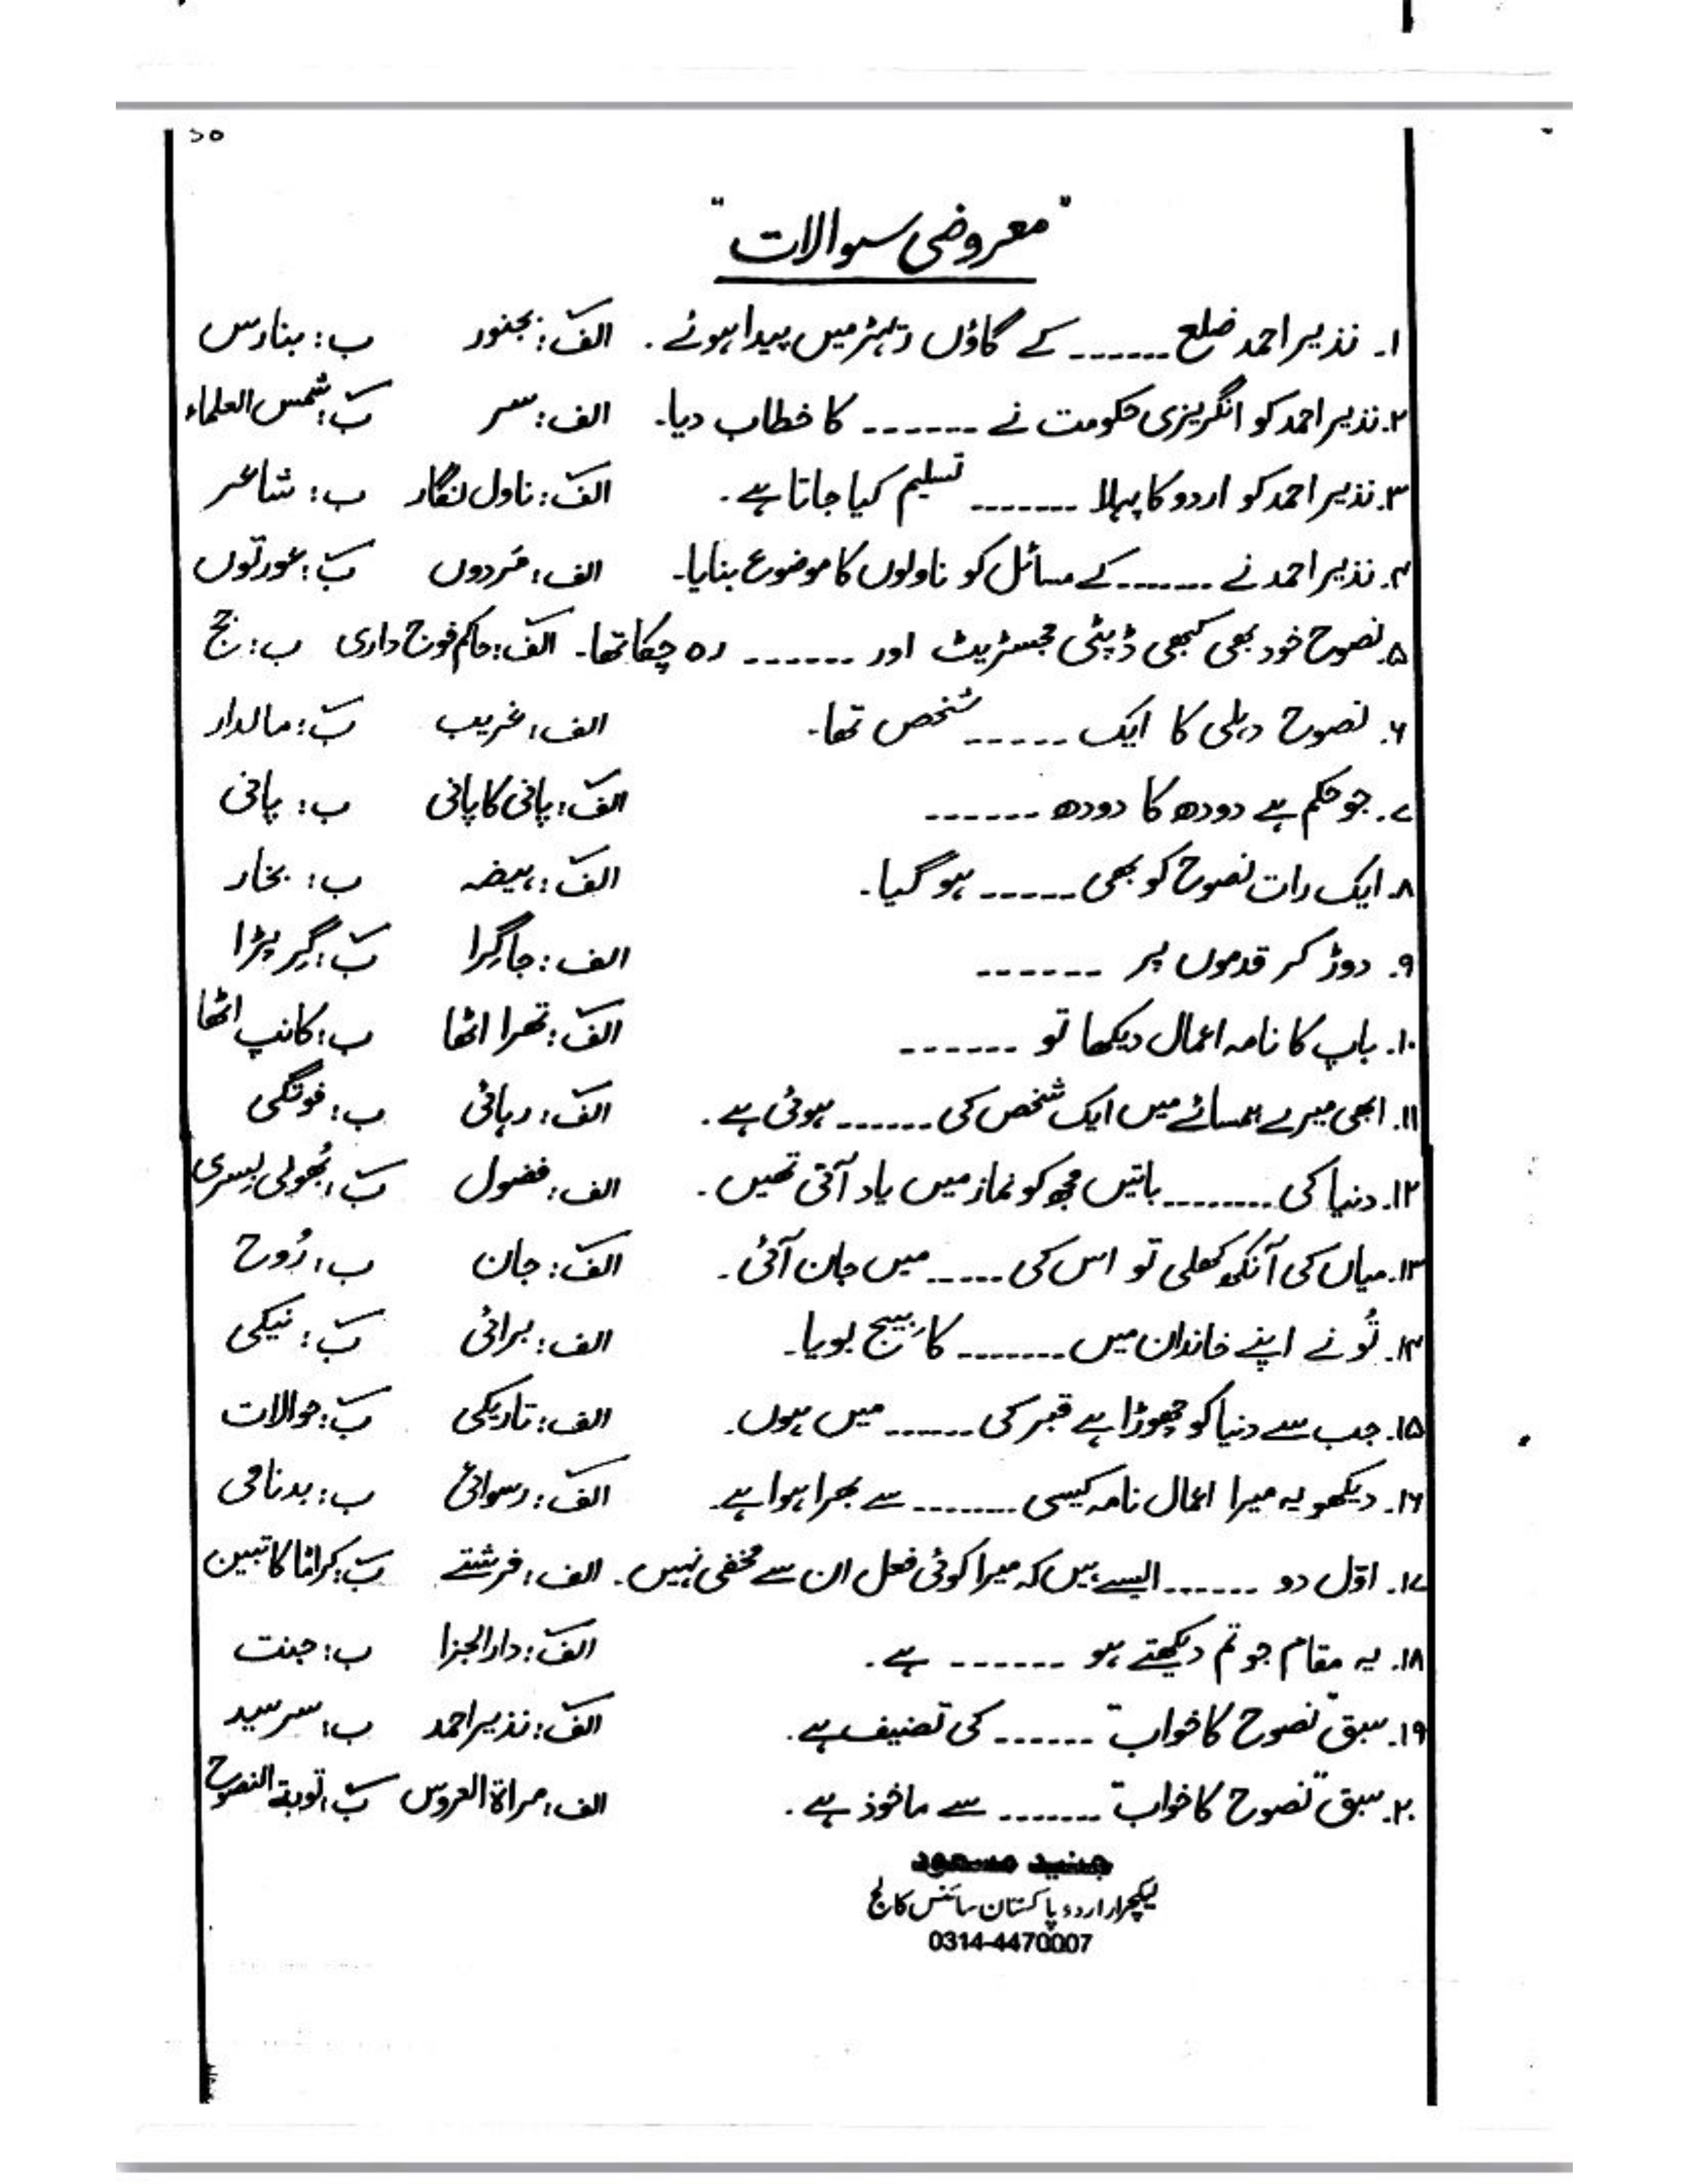 "معروضی سوالات"
۱۔ نذیر احمد ضلع ------- کے گاؤں ریہڑ میں پیدا ہوئے۔ الف: بجنور ب: بنارس
۲۔ نذیر احمد کو انگریزی حکومت نے ------- کا خطاب دیا۔ الف: سر ب: شمس العلماء
۳۔ نذیر احمد کو اردو کا پہلا ------- تسلیم کیا جاتا ہے۔ الف: ناول نگار ب: شاعر
۴۔ نذیر احمد نے ------- کے مسائل کو ناولوں کا موضوع بنایا۔ الف: مَردوں ب: عورتوں
۵۔ نصوح خود بھی کبھی ڈپٹی مجسٹریٹ اور ------- رہ چکا تھا۔ الف: حاکم فوج داری ب: جج
۶۔ نصوح دہلی کا ایک ------ شخص تھا۔ الف: غریب ب: مالدار
۷۔ جو حکم ہے دودھ کا دودھ ------ الف: پانی کا پانی ب: پانی
۸۔ ایک رات نصوح کو بھی ------ ہو گیا۔ الف: ہیضہ ب: بخار
۹۔ دوڑ کر قدموں پر ------ الف: جا گِرا ب: گِر پڑا
۱۰۔ باپ کا نامہ اعمال دیکھا تو ------ الف: تھرا اٹھا ب: کانپ اٹھا
۱۱۔ ابھی میرے ہمسائے میں ایک شخص کی ------ ہوئی ہے۔ الف: رہائی ب: فوتگی
۱۲۔ دنیا کی -------- باتیں مجھ کو نماز میں یاد آتی تھیں۔ الف: فضول ب: بُھولی بِسری
۱۳۔ میاں کی آنکھ کھلی تو اس کی ----- میں جان آئی۔ الف: جان ب: رُوح
۱۴۔ تُو نے اپنے خاندان میں ------- کا بیج بویا۔ الف: برائی ب: نیکی
۱۵۔ جب سے دنیا کو چھوڑا ہے قبر کی ------ میں ہوں۔ الف: تاریکی ب: حوالات
۱۶۔ دیکھو یہ میرا اعمال نامہ کیسی ------- سے بھرا ہوا ہے۔ الف: رسوائی ب: بدنامی
۱۷۔ اوّل دو ------- ایسے ہیں کہ میرا کوئی فعل ان سے مخفی نہیں۔ الف: فرشتے ب: کراماً کاتبین
۱۸۔ یہ مقام جو تم دیکھتے ہو ------- ہے۔ الف: دارالجزا ب: جنت
۱۹۔ سبق "نصوح کا خواب" ------- کی تصنیف ہے۔ الف: نذیر احمد ب: سرسید
۲۰۔ سبق "نصوح کا خواب" ------- سے ماخوذ ہے۔ الف: مراۃ العروس ب: توبۃ النصوح
جنید مسعود
لیکچرار اردو پاکستان سائنس کالج
0314-4470007